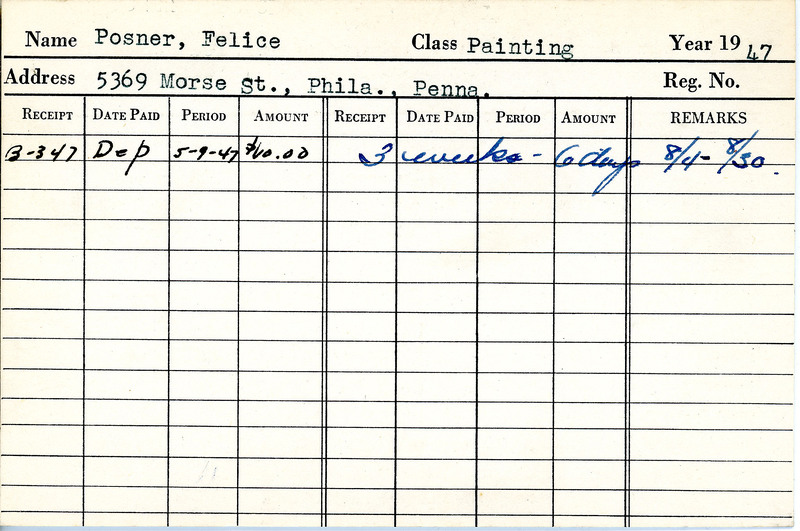 Name Posner, Felice Class Painting Year 1947
Address 5369 Morse St., Phila., Penna. Reg. No.
RECEIPT DATE PAID PERIOD AMOUNT RECEIPT DATE PAID PERIOD AMOUNT REMARKS
B-347 Dep 5-9-47 $10.00 3 weeks - 6 days 8/4- 8/30.